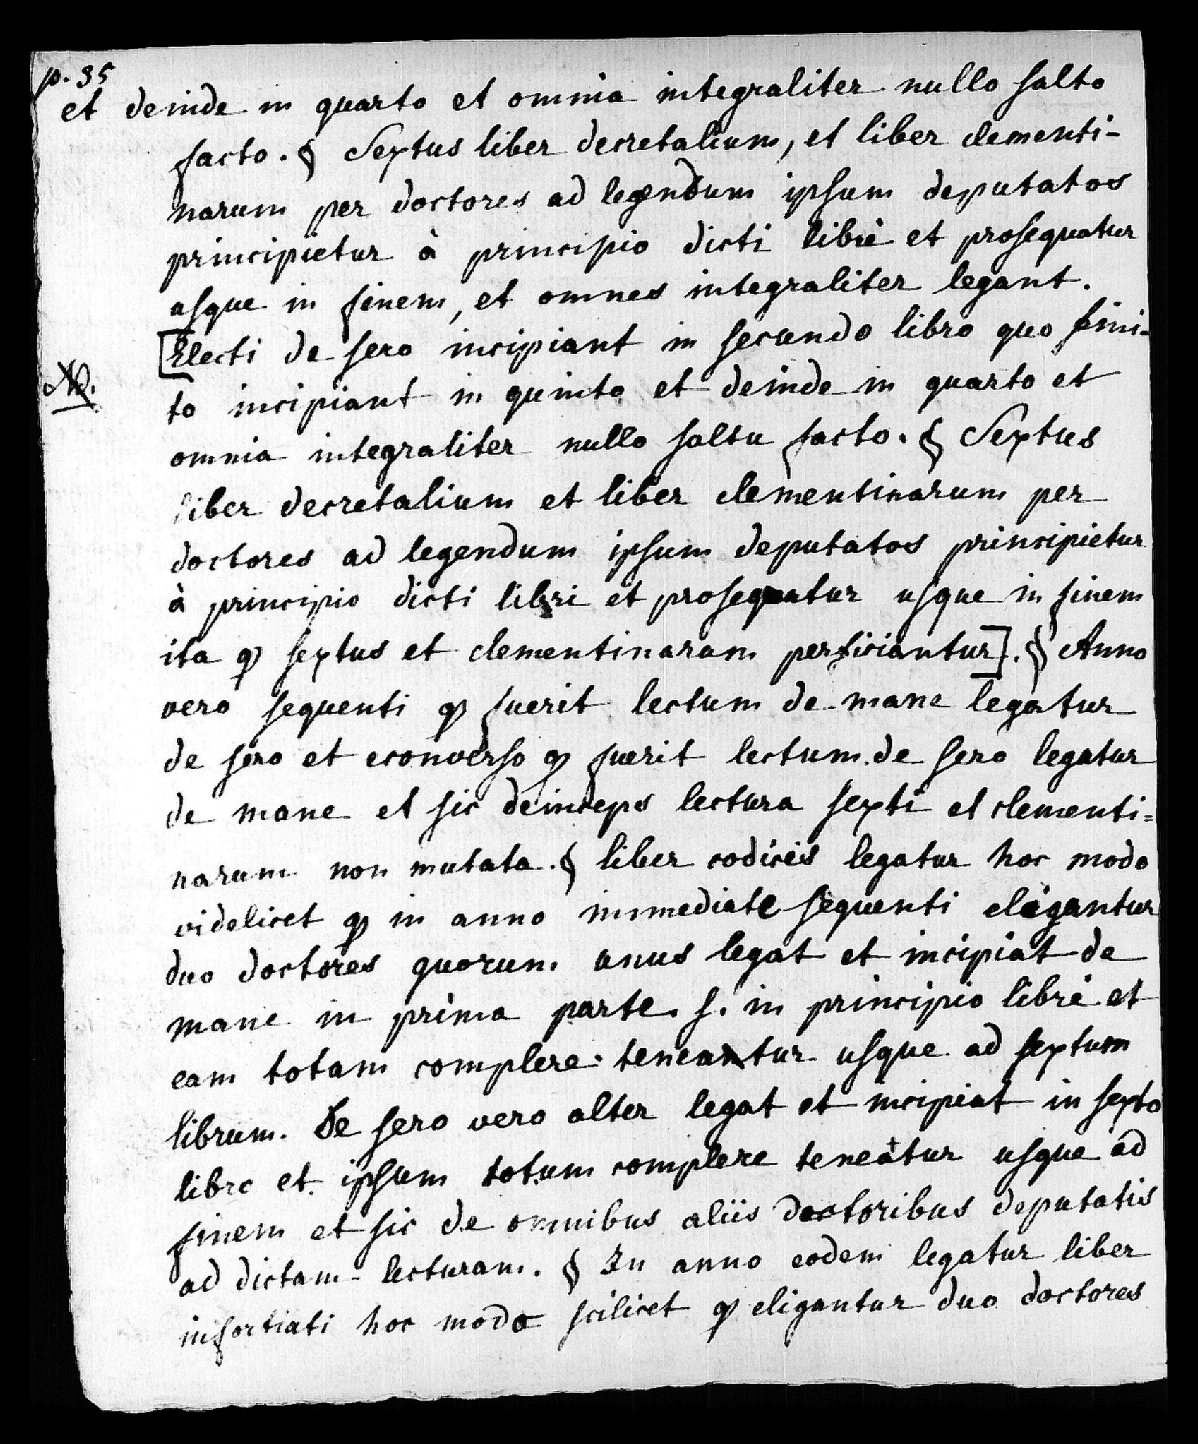 p. 35
et deinde in quarto et omnia integraliter nullo salto
facto. § Sextus liber decretalium, et liber clementi-
narum per doctores ad legendum ipsum deputatos
principietur à principio dicti libri et prosequatur
usque in finem, et omnes integraliter legant.
[Electi de sero incipiant in secundo libro quo fini-
NB.
to incipiant in quinto et deinde in quarto et
omnia integraliter nullo saltu facto. § Sextus
liber decretalium et liber clementinarum per
doctores ad legendum ipsum deputatos principietur
à principio dicti libri et prosequatur usque in finem
ita qͥ sextus et clementinarum perficiantur]. § Anno
vero sequenti qͥ fuerit lectum de mane legatur
de sero et econverso qͥ fuerit lectum de sero legatur
de mane et sic deinceps lectura sexti et clementi=
narum non mutata. § liber codicis legatur hoc modo
videlicet qͥ in anno immediate sequenti elegantur
duo doctores quorum unus legat et incipiat de
mane in prima parte s. in principio libri et
eam totam complere teneatur usque ad sextum
librum. De sero vero alter legat et incipiat in sexto
libro et ipsum totum complere teneatur usque ad
finem et sic de omnibus aliis doctoribus deputatis
ad dictam lecturam. § In anno eodem legatur liber
infortiati hoc modo scilicet qͥ eligantur duo doctores